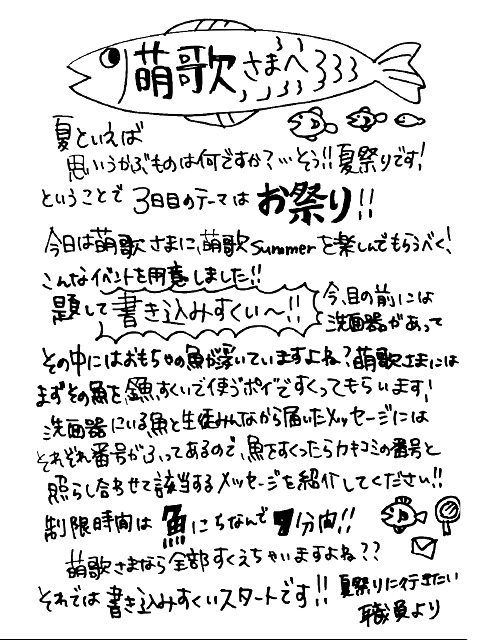 萌歌さまへ
夏といえば
思いうかぶものは何ですか?…そう!!夏祭りです!
ということで 3日目のテーマは お祭り!!
今日は萌歌さまに、萌歌summerを楽しんでもらうべく!
こんなイベントを用意しました!!
題して 書き込みすくい〜!! 今、目の前には
洗面器があって
その中にはおもちゃの魚が浮いていますよね?萌歌さまには
まずその魚を金魚すくいで使うポイですくってもらいます!
洗面器にいる魚と生徒みんなから届いたメッセージには
それぞれ番号がふってあるので、魚をすくったらカキコミの番号と
照らし合わせて該当するメッセージを紹介してください!!
制限時間は 魚にちなんで 7分間!!
萌歌さまなら全部すくえちゃいますよね??
それでは 書き込みすくいスタートです!! 夏祭りに行きたい
職員より